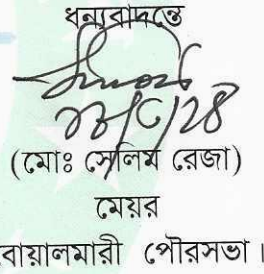 ধন্যবাদান্তে
(মোঃ সেলিম রেজা)
মেয়র
বোয়ালমারী পৌরসভা।